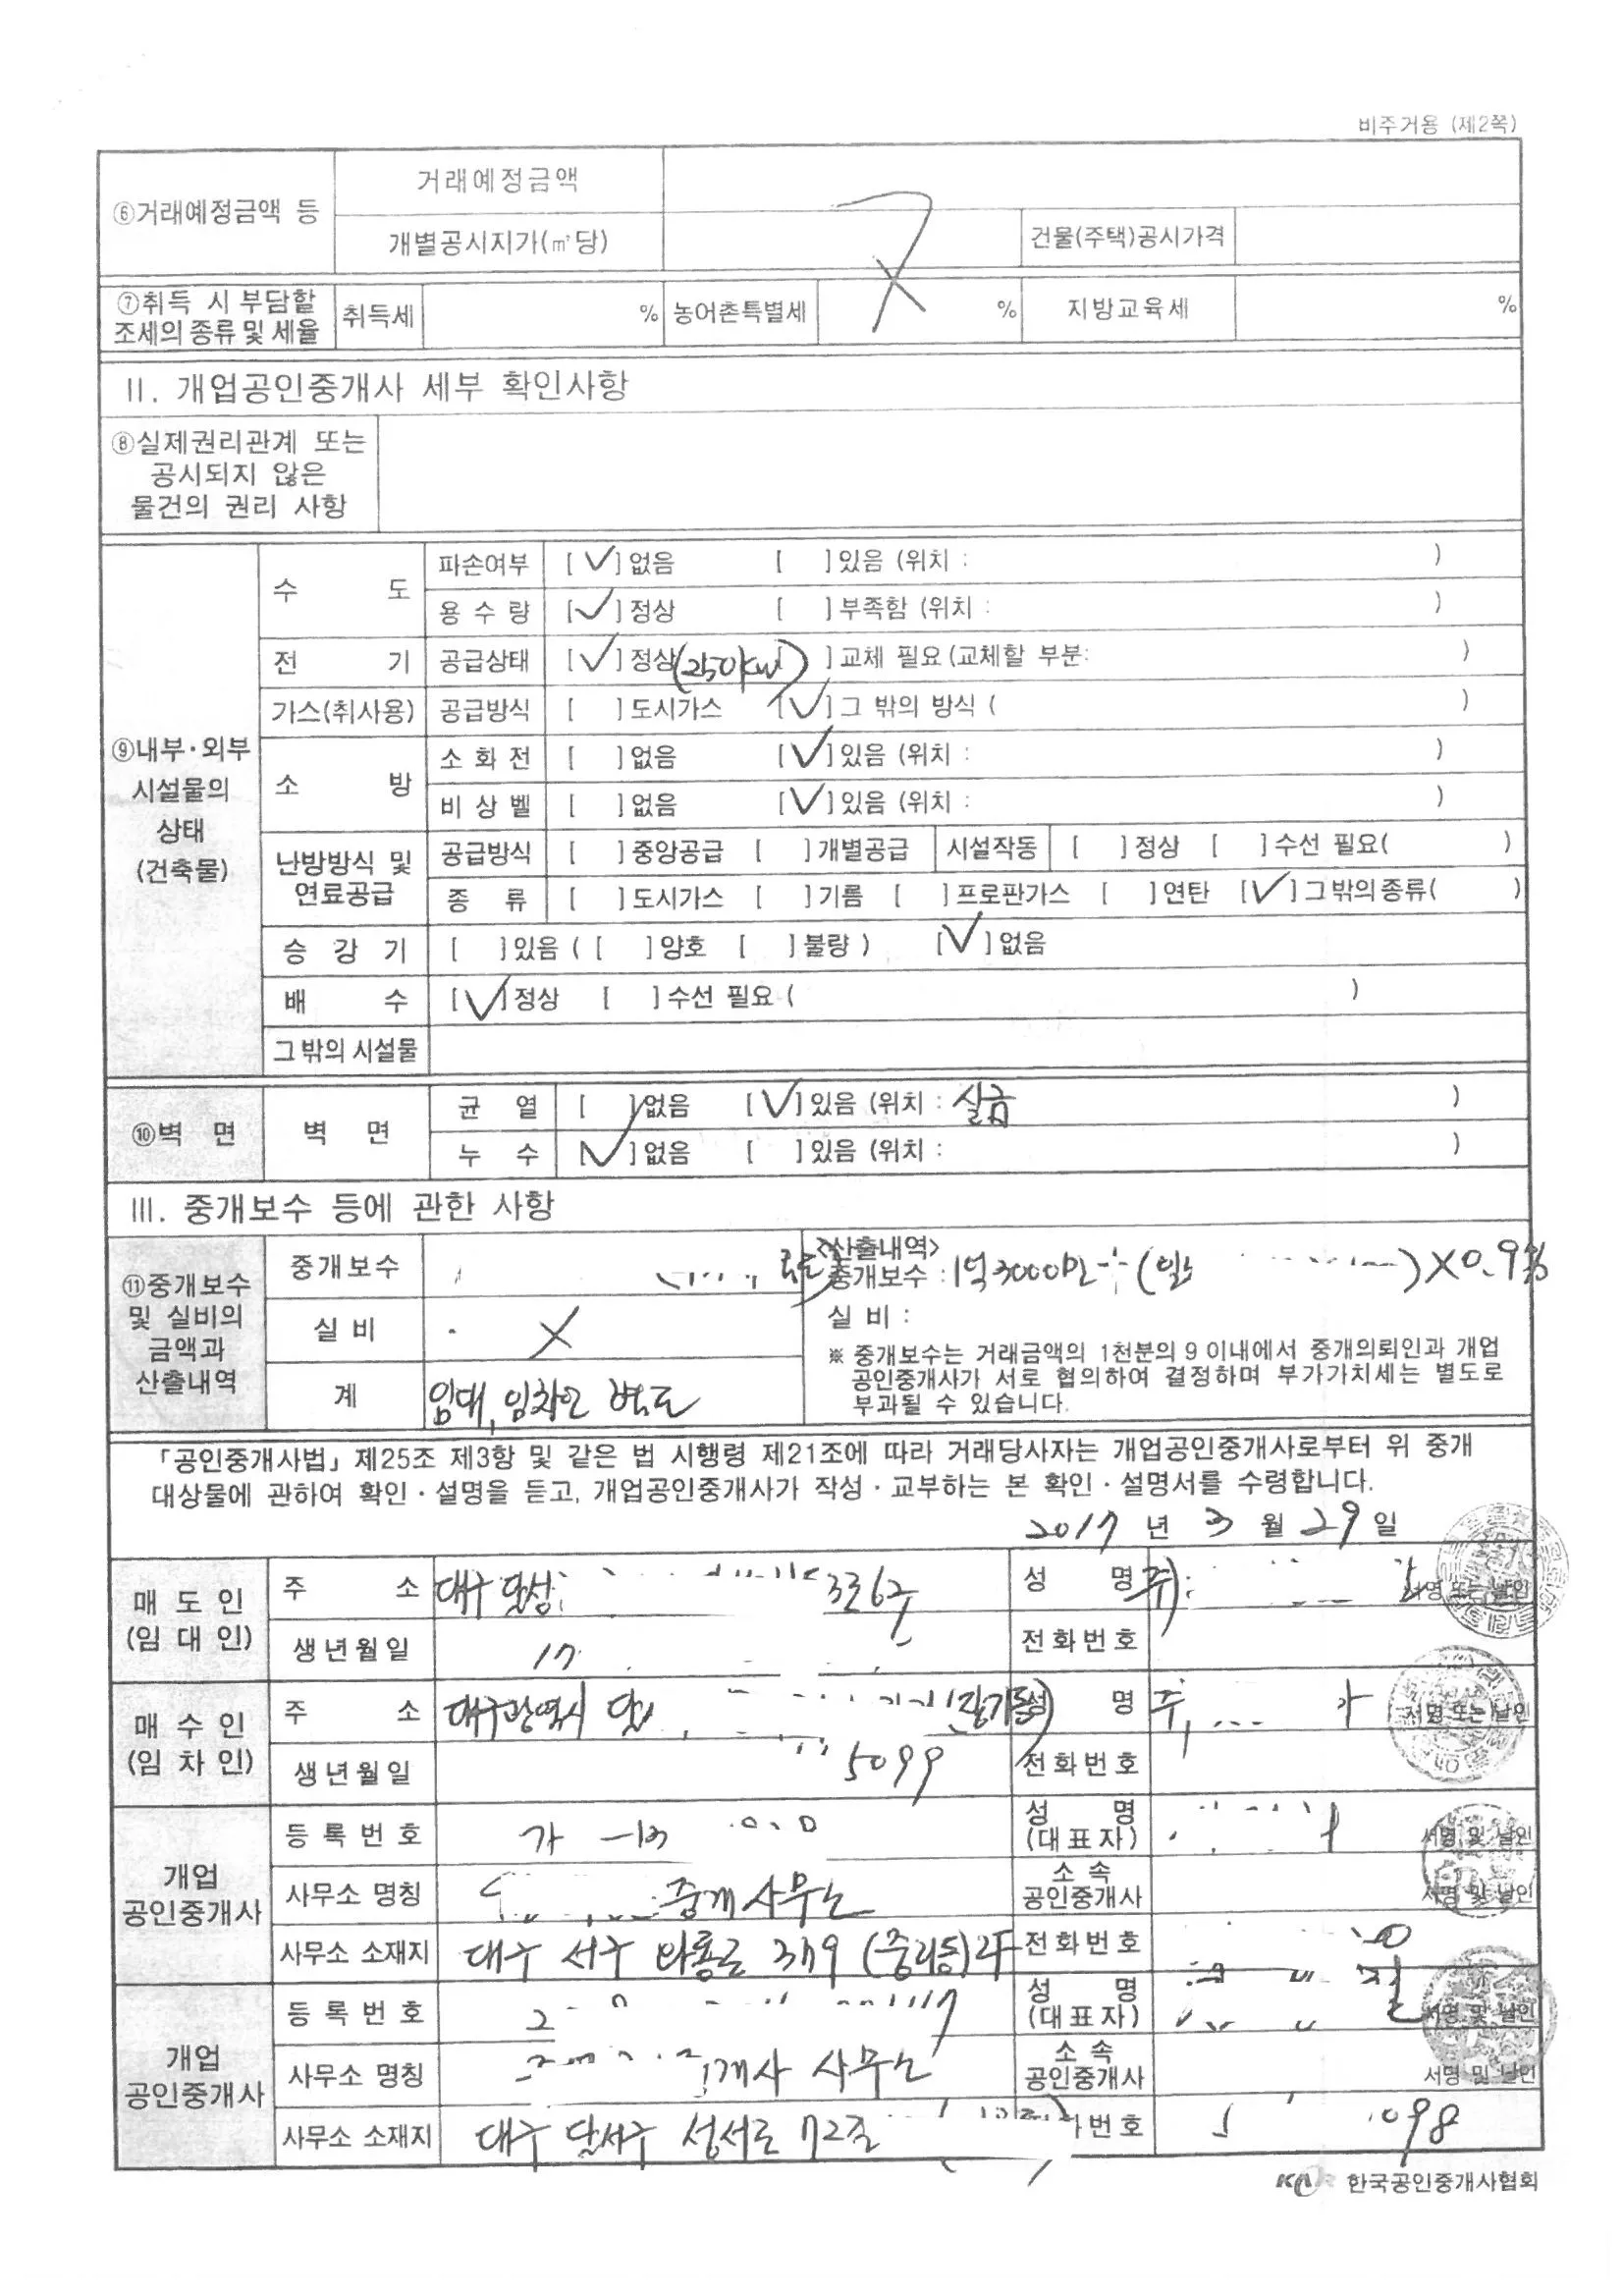 비주거용 (제2쪽)
⑥거래예정금액 등
거래예정금액
개별공시지가(㎡당)
건물(주택)공시가격
⑦취득 시 부담할
조세의 종류 및 세율
취득세 % 농어촌특별세 % 지방교육세 %
II. 개업공인중개사 세부 확인사항
⑧실제권리관계 또는
공시되지 않은
물건의 권리 사항
⑨내부·외부
시설물의
상태
(건축물)
수 도
파손여부 [✓]없음 [ ]있음 (위치 : )
용 수 량 [✓]정상 [ ]부족함 (위치 : )
전 기 공급상태 [✓]정상(250kw) [ ]교체 필요(교체할 부분: )
가스(취사용) 공급방식 [ ]도시가스 [✓]그 밖의 방식 ( )
소 방
소 화 전 [ ]없음 [✓]있음 (위치 : )
비 상 벨 [ ]없음 [✓]있음 (위치 : )
난방방식 및
연료공급
공급방식 [ ]중앙공급 [ ]개별공급 시설작동 [ ]정상 [ ]수선 필요( )
종 류 [ ]도시가스 [ ]기름 [ ]프로판가스 [ ]연탄 [✓]그 밖의 종류( )
승 강 기 [ ]있음 ( [ ]양호 [ ]불량 ) [✓]없음
배 수 [✓]정상 [ ]수선 필요 ( )
그 밖의 시설물
⑩벽 면
벽 면
균 열 [ ]없음 [✓]있음 (위치 : 실금 )
누 수 [✓]없음 [ ]있음 (위치 : )
III. 중개보수 등에 관한 사항
⑪중개보수
및 실비의
금액과
산출내역
중개보수
실 비 X
계 임대, 임차인 별도
<산출내역>
중개보수 : 1억3000만 ) X 0.9%
실 비 :
※ 중개보수는 거래금액의 1천분의 9 이내에서 중개의뢰인과 개업
공인중개사가 서로 협의하여 결정하며 부가가치세는 별도로
부과될 수 있습니다.
「공인중개사법」 제25조 제3항 및 같은 법 시행령 제21조에 따라 거래당사자는 개업공인중개사로부터 위 중개
대상물에 관하여 확인·설명을 듣고, 개업공인중개사가 작성·교부하는 본 확인·설명서를 수령합니다.
2017 년 3 월 29 일
매 도 인
(임 대 인)
주 소 대구 달성
성 명 서명 또는 날인
생년월일 17
전화번호
매 수 인
(임 차 인)
주 소 대구광역시
성 명 서명 또는 날인
생년월일 5099
전화번호
개업
공인중개사
등록번호 가
성 명
(대표자) 서명 및 날인
사무소 명칭 중개사무소
소 속
공인중개사 서명 및 날인
사무소 소재지 대구 서구 와룡로 379 (중리동) 2F
전화번호
개업
공인중개사
등록번호
성 명
(대표자) 서명 및 날인
사무소 명칭 개사 사무소
소 속
공인중개사 서명 및 날인
사무소 소재지 대구 달서구 성서로 72길
번호 098
KAR 한국공인중개사협회